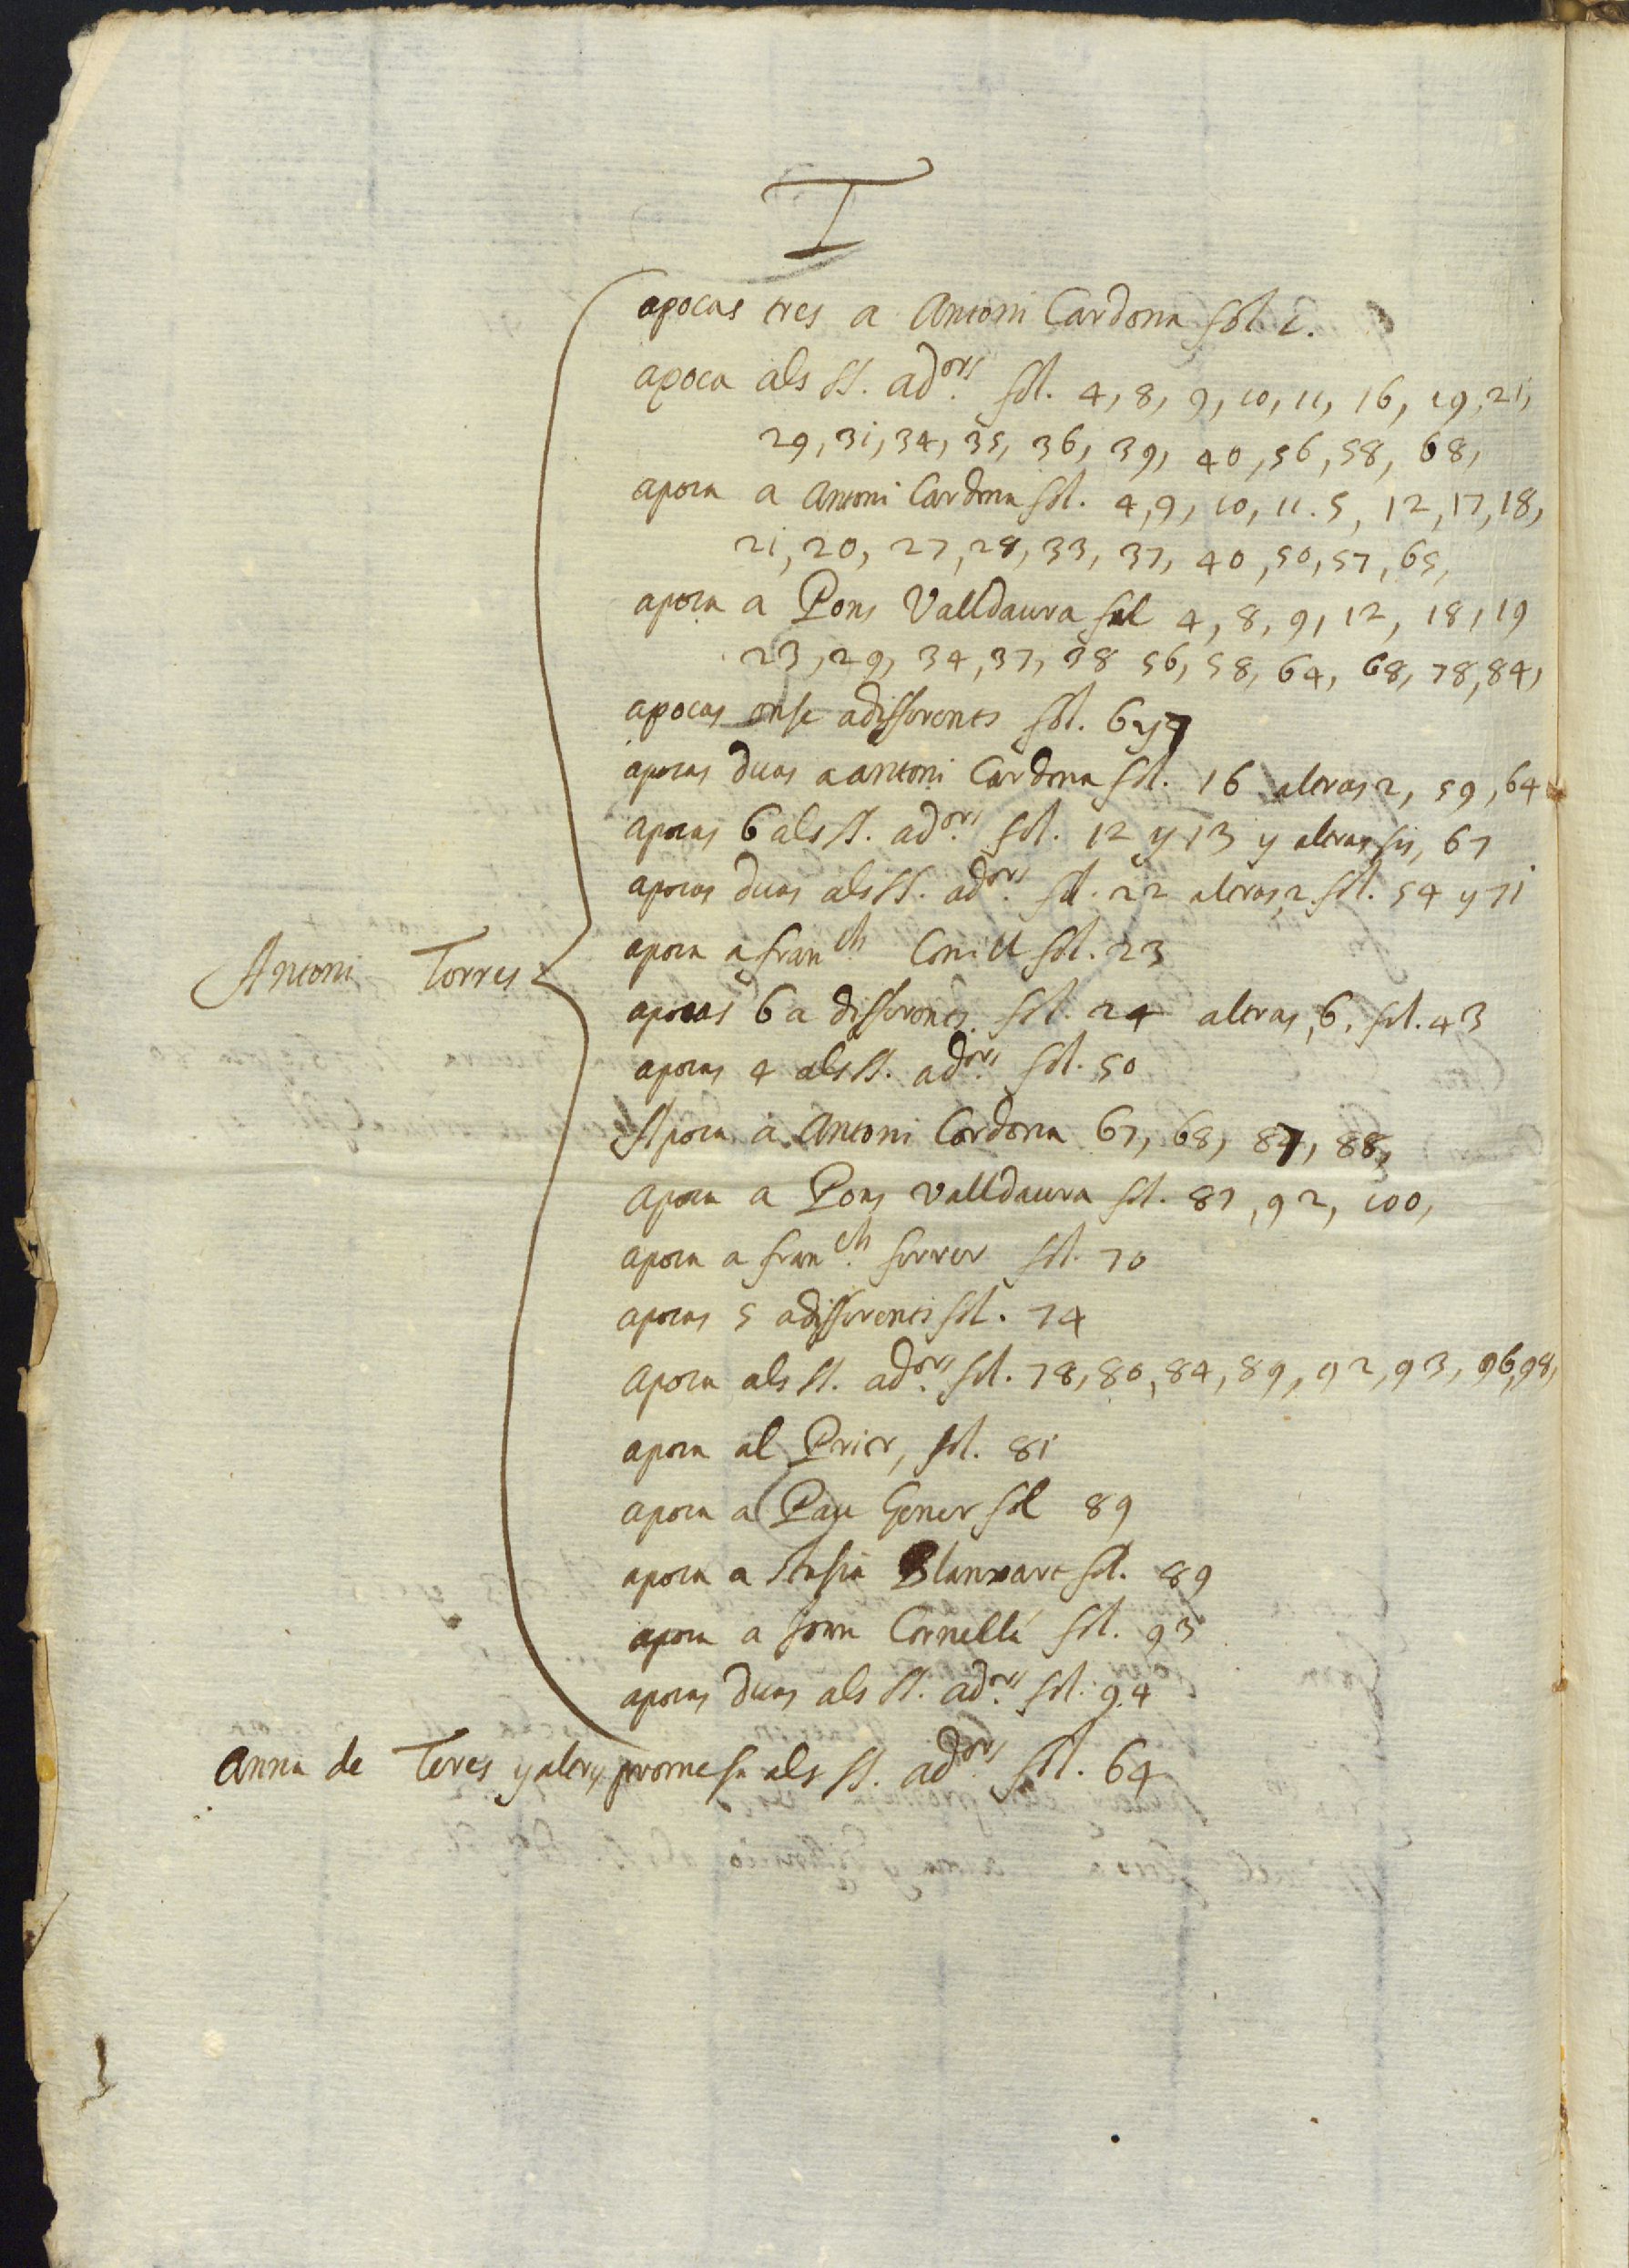 T
apocas tres a Antoni Cardona fol. 2.
apoca als SS. ad.ors fol. 4, 8, 9, 10, 11, 16, 19, 21,
29, 31, 34, 35, 36, 39, 40, 56, 58, 68,
apoca a Antoni Cardona fol. 4, 9, 10, 11. 5, 12, 17, 18,
21, 20, 27, 28, 33, 37, 40, 50, 57, 65,
apoca a Pons Valldaura fol 4, 8, 9, 12, 18, 19
23, 29, 34, 37, 38 56, 58, 64, 68, 78, 84,
apocas onse a differents fol. 6 y 7
apocas duas a antoni Cardona fol. 16 altras 2, 59, 64
apocas 6 als SS. ad.ors fol. 12 y 13 y altras sis, 67
apocas duas als SS. ad.ors fol. 22 altras 2 fol. 54 y 71
apoca a fran.ch Conill fol. 23
Antoni Torres
apocas 6 a differents fol. 24 altras, 6. fol. 43
apocas 4 als SS. ad.ors fol. 50
Apoca a Antoni Cardona 67, 68, 87, 88,
apoca a Pons Valldaura fol. 87, 92, 100,
apoca a fran.ch ferrer fol. 70
apocas 5 a differents fol. 74
apoca als SS. ad.ors fol. 78, 80, 84, 89, 92, 93, 96, 98,
apoca al Prior, fol. 81
apoca a Pau Gener fol 89
apoca a Blanxart fol. 89
apoca a Cornellá fol. 93
apocas duas als SS. ad.ors fol. 94
Anna de Teres y altres promesa als SS. ad.ors fol. 64